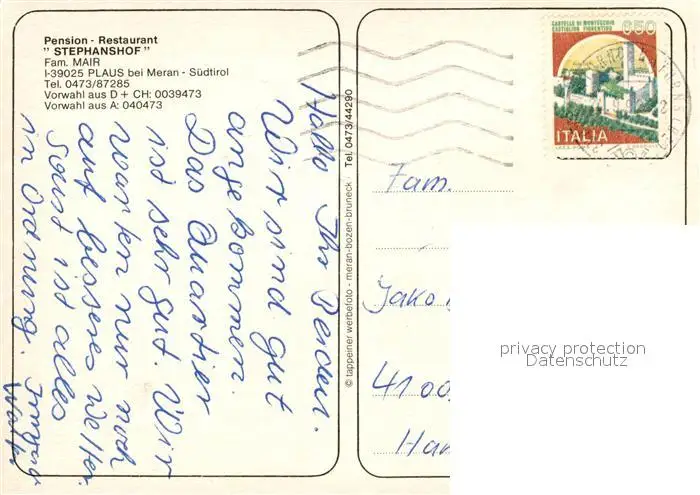 Pension - Restaurant
" STEPHANSHOF "
Fam. MAIR
I-39025 PLAUS bei Meran - Südtirol
Tel. 0473/87285
Vorwahl aus D + CH: 0039473
Vorwahl aus A: 040473
Hallo Ihr Beiden.
Wir sind gut
angekommen.
Das Quartier
ist sehr gut. Wir
warten nur noch
auf besseres Wetter.
Sonst ist alles
in Ordnung.
© tappeiner werbefoto - meran-bozen-bruneck · Tel. 0473/44290
CASTELLO DI MONTECCHIO
CASTIGLION FIORENTINO
650
ITALIA
Fam.
Jako
4100
Han
privacy protection
Datenschutz